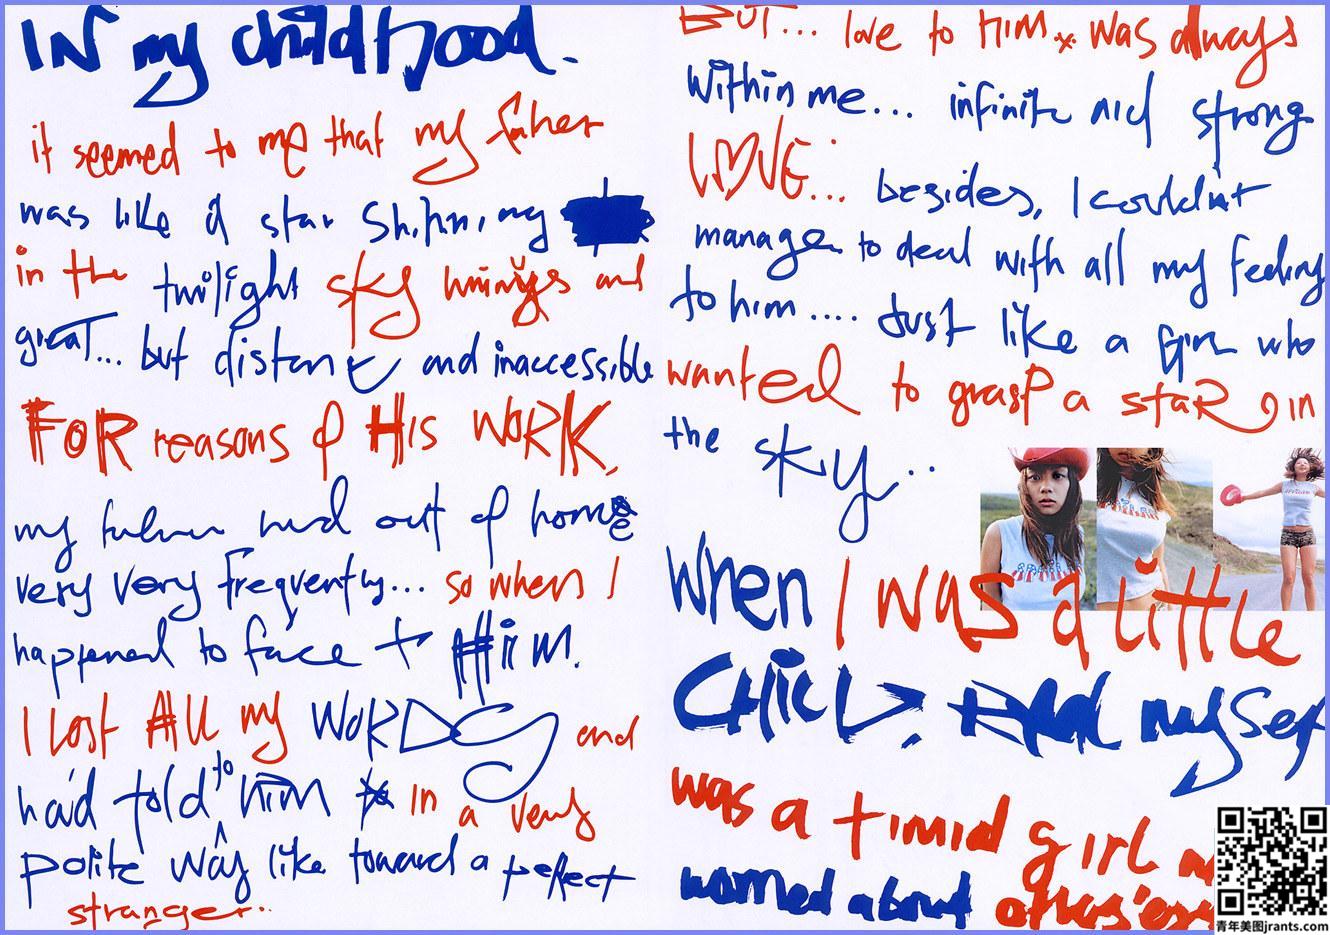 IN my childhood.
it seemed to me that my father
was like a star shining
in the twilight sky and
great... but distant and inaccessible
FOR reasons of His WORK,
my out of home
very very frequently... so when I
happened to face to Him.
I lost All my WORDS and
had told to him in a very
polite way like toward a perfect
stranger..
BUT... love to Him was always
within me... infinite and strong
LOVE... besides, I couldn't
manage to deal with all my feeling
to him.... Just like a girl who
wanted to grasp a staR in
the sky..
When I was a little
CHILD, myself
was a timid girl
worried about
青年美图jrants.com